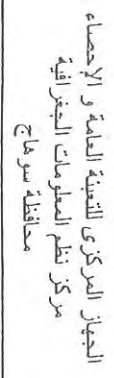 الجهاز المركزى للتعبئة العامة و الإحصاء
مركز نظم المعلومات الجغرافية
محافظة سوهاج